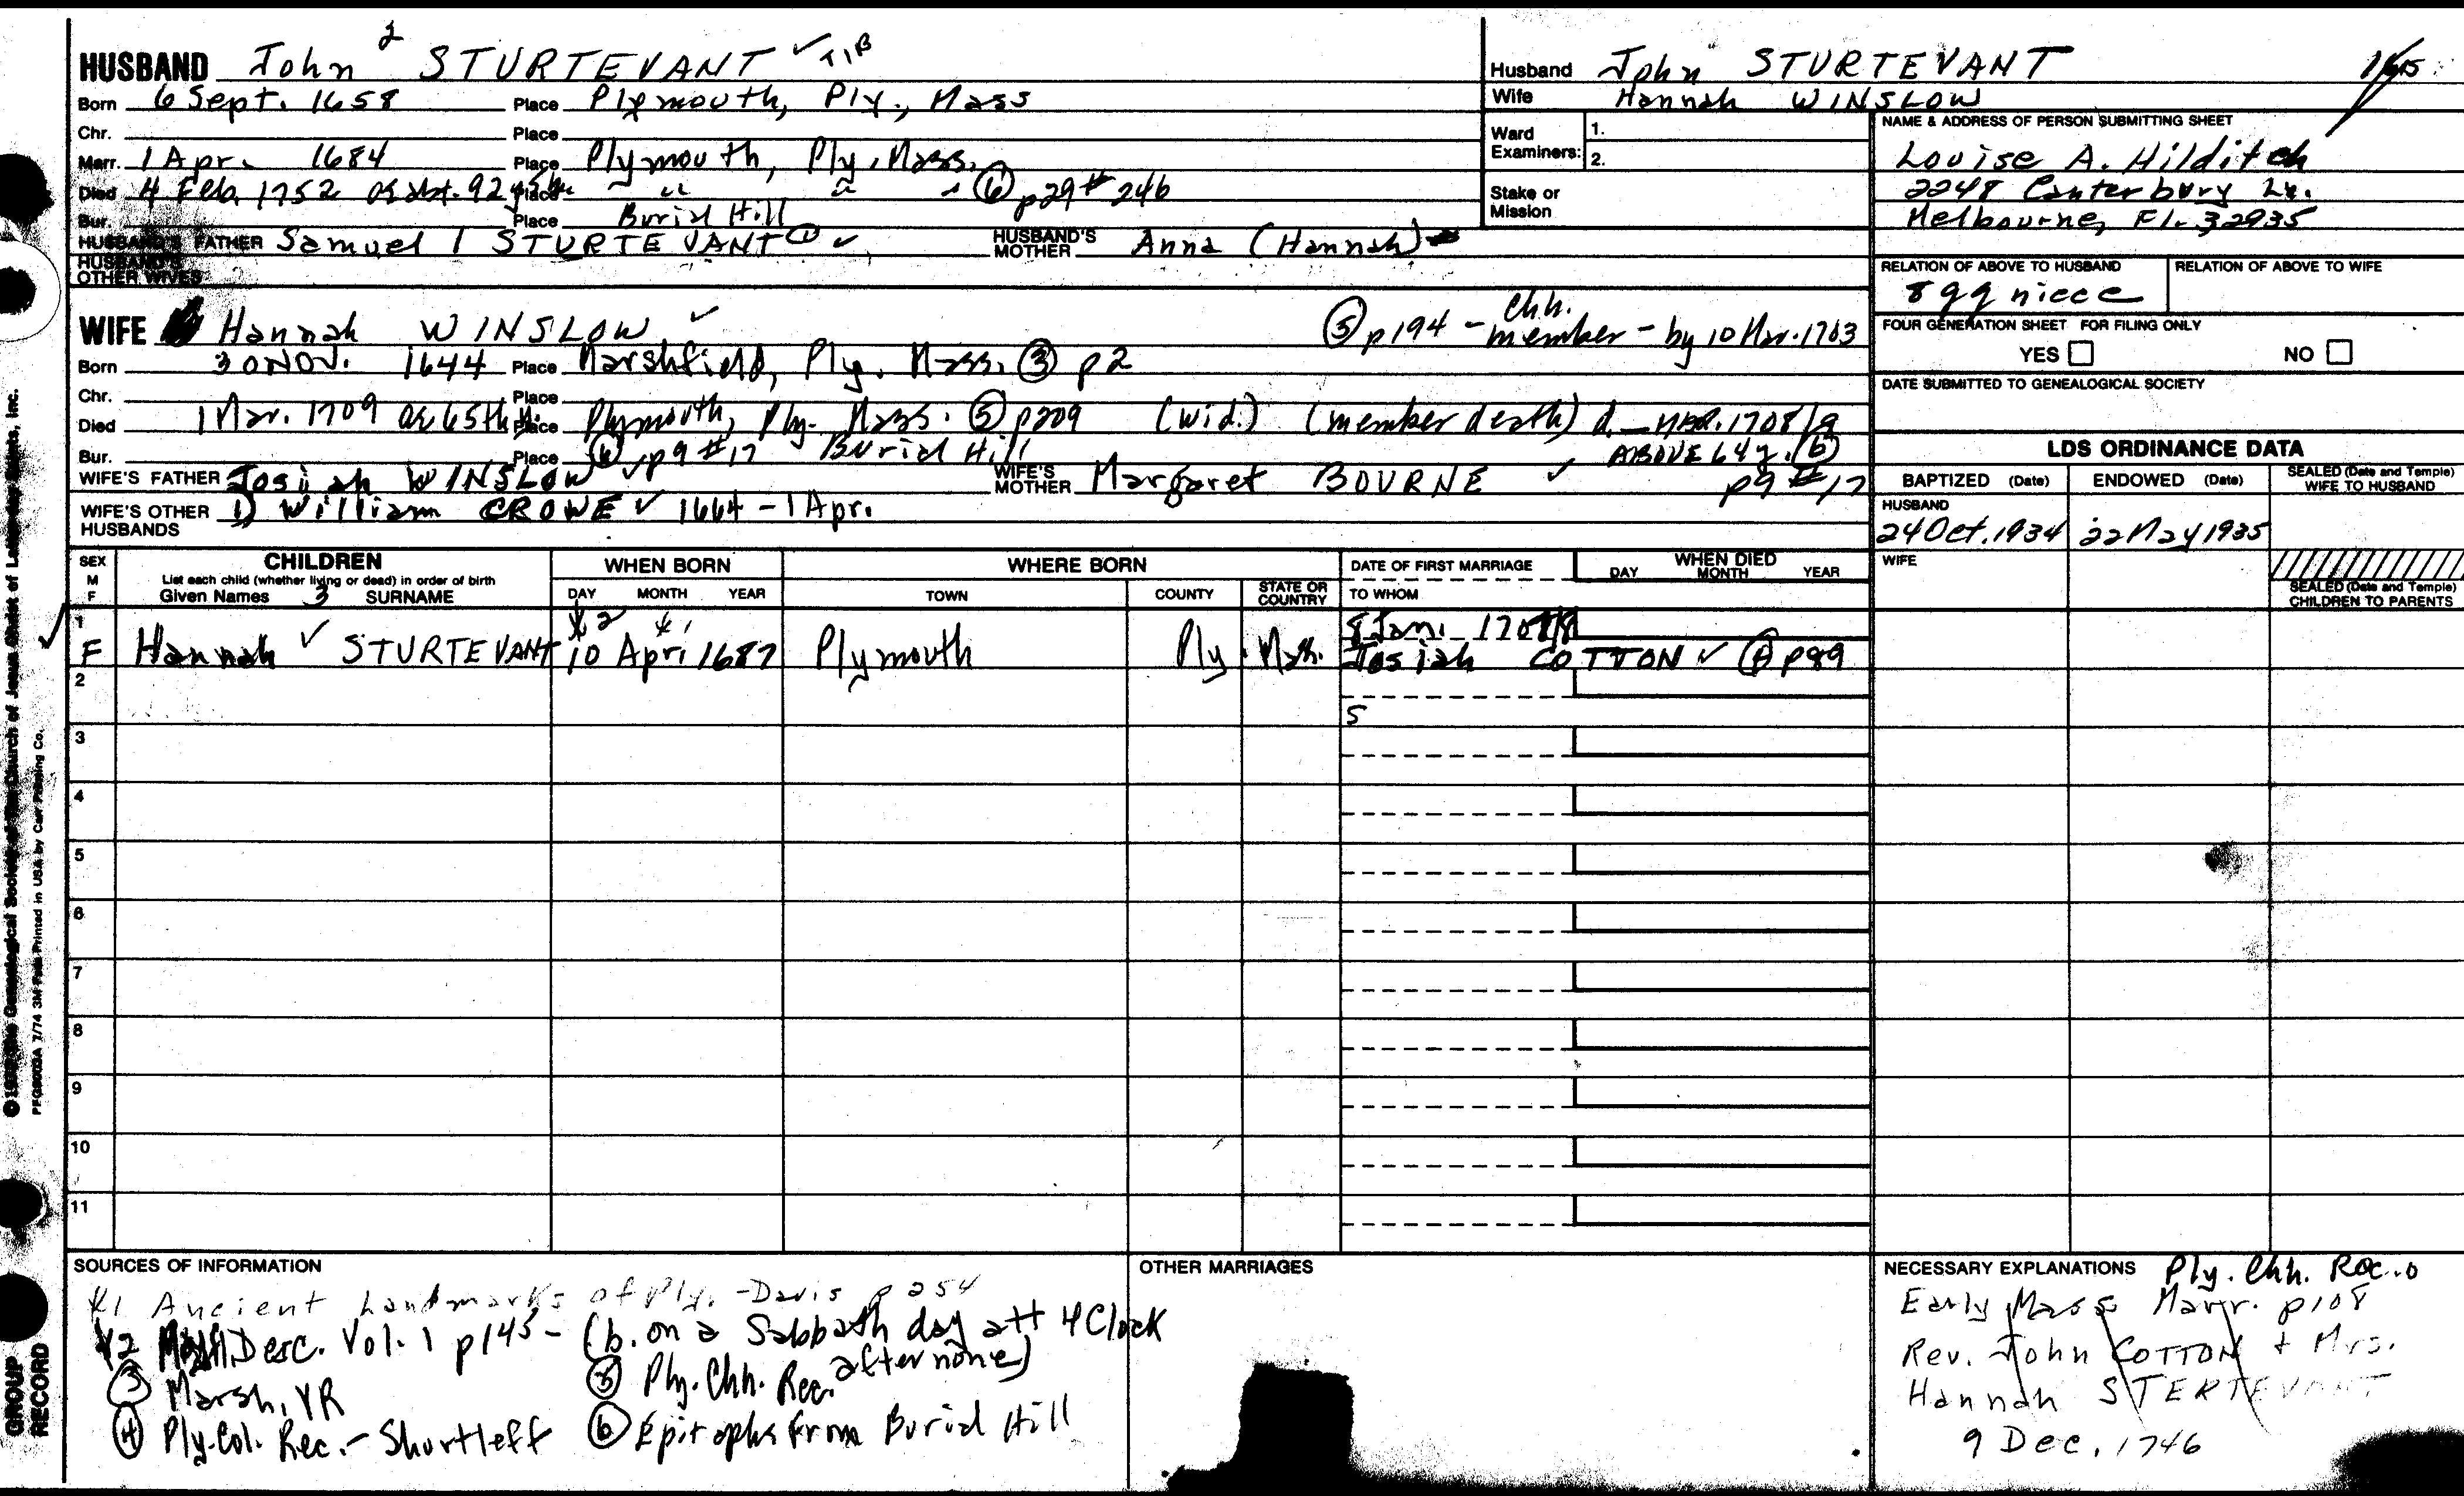 HUSBAND John 2 STURTEVANT ✓ T1B
Born 6 Sept. 1658 Place Plymouth, Ply., Mass
Chr. Place
Marr. 1 Apr. 1684 Place Plymouth, Ply. Mass.
Died 4 Feb. 1752 Place " " " ⑥ p29 # 246
Bur. Place Burial Hill
HUSBAND'S FATHER Samuel 1 STURTEVANT ① ✓ HUSBAND'S MOTHER Anna (Hannah)
HUSBAND'S OTHER WIVES
WIFE Hannah WINSLOW ✓ ⑤ p194 - Chh. member - by 10 Mar. 1703
Born 30 NOV. 1644 Place Marshfield, Ply. Mass. ③ p2
Chr. Place
Died 1 Mar. 1709 ae 65th y. Place Plymouth, Ply. Mass. ⑤ p209 (wid.) (member death) d. — MAR. 1708/9
Bur. Place ⑥ ✓ p9 #17 Burial Hill ABOVE 64 y. (6) p9 #17
WIFE'S FATHER Josiah WINSLOW WIFE'S MOTHER Margaret BOURNE ✓
WIFE'S OTHER HUSBANDS 1) William CROWE ✓ 1664 - 1 Apr.
Husband John STURTEVANT
Wife Hannah WINSLOW
Ward Examiners: 1.
2.
Stake or Mission
NAME & ADDRESS OF PERSON SUBMITTING SHEET
Louise A. Hilditch
2248 Canterbury Ln.
Melbourne, FL 32935
RELATION OF ABOVE TO HUSBAND RELATION OF ABOVE TO WIFE
8 gg niece
FOUR GENERATION SHEET FOR FILING ONLY
YES NO
DATE SUBMITTED TO GENEALOGICAL SOCIETY
LDS ORDINANCE DATA
BAPTIZED (Date) ENDOWED (Date) SEALED (Date and Temple) WIFE TO HUSBAND
HUSBAND
24 Oct. 1934 22 May 1935
WIFE
SEALED (Date and Temple) CHILDREN TO PARENTS
SEX M F CHILDREN List each child (whether living or dead) in order of birth Given Names 3 SURNAME
WHEN BORN DAY MONTH YEAR
WHERE BORN TOWN COUNTY STATE OR COUNTRY
DATE OF FIRST MARRIAGE TO WHOM
WHEN DIED DAY MONTH YEAR
1 F Hannah ✓ STURTEVANT 10 Apr. 1687 Plymouth Ply. Mass. 8 Jan. 1707/8
Josiah COTTON ✓ p89
2
S
3
4
5
6
7
8
9
10
11
SOURCES OF INFORMATION
*1 Ancient Landmarks of Ply. - Davis p 254
*2 Desc. Vol. 1 p 145 - (b. on a Sabbath day att 4 Clock afternone)
③ Marsh. VR
④ Ply. Col. Rec. - Shurtleff
⑤ Ply. Chh. Rec.
⑥ Epitaphs from Burial Hill
OTHER MARRIAGES
NECESSARY EXPLANATIONS Ply. Chh. Rec.
Early Mass Marr. p108
Rev. John COTTON + Mrs.
Hannah STERTEVANT
9 Dec. 1746
PFGS003A 7/74 3M Pads Printed in USA by Carr Printing Co.
GROUP RECORD